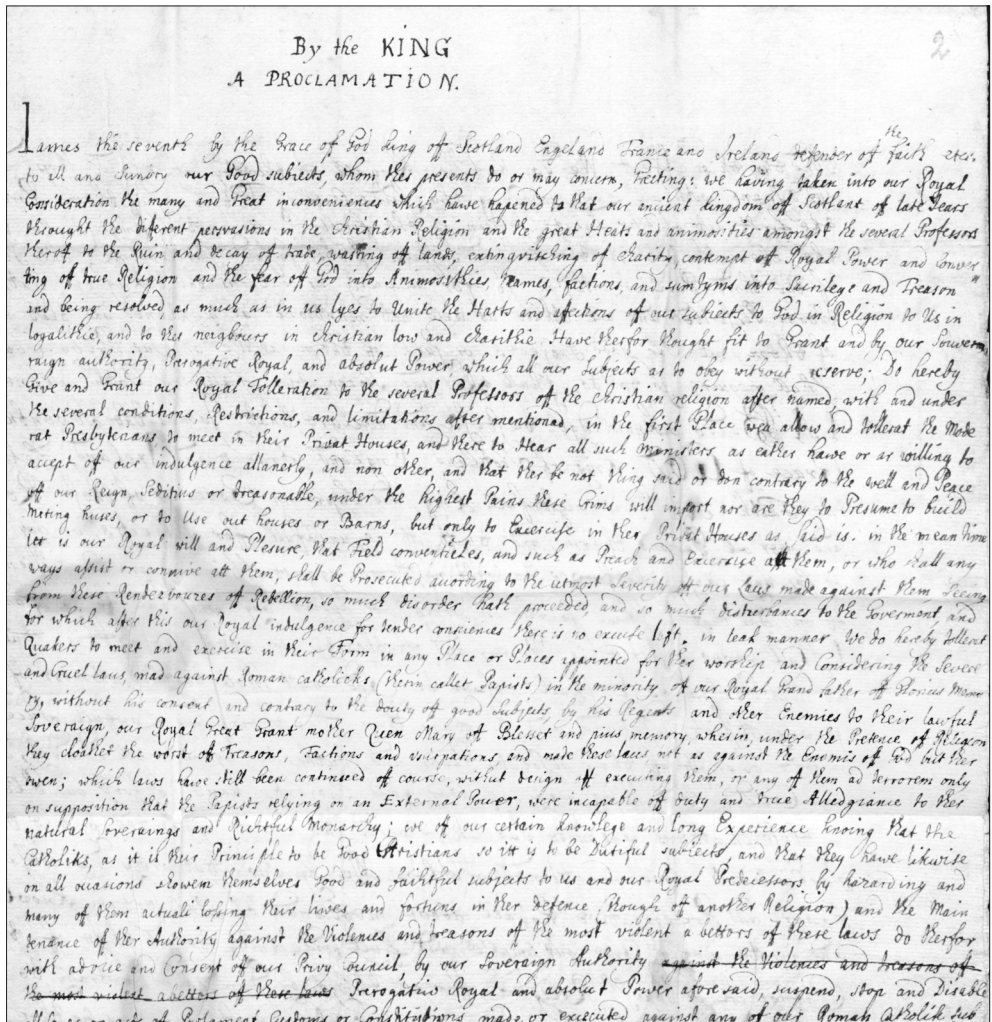 2
By the KING
A PROCLAMATION.
Iames the seventh by the Grace of God King off Scotland Engeland France and Ireland defender of the faith etc.
to all and Sundry our Good subjects, whom thes presents do or may concern, Greeting: we having taken into our Royal
Consideration the many and Great inconveniences which hawe hapened to that our ancient kingdom of Scotlant of late years
throught the different perswasions in the Christian Religion and the great Heats and animosities amongst the several Professors
therof to the Ruin and decay of trade, wasting off lands, extinquitching of charity, contempt off Royal Power and conver
ting of true Religion and the fear off God into Animosithies, Names, factions, and sumtyms into Sacrilege and Treason
and being resolved as much as in us lyes to Unite the Harts and affections of our subjects to God in Religion to Us in
loyalithie, and to thes neighbours in Christian low and charithie Hawe therfor thought fit to Grant and by our Souvera,
raign authority, Prerogative Royal, and absolut Power, which all our Subjects ar to obey without reserve; Do hereby
Give and Grant our Royal Tolleration to the several Professors off the Christian religion after named, with and under
the several conditions, Restrictions, and limitations after mentionad, in the first Place wea allow and tollerat the Mode
rat Presbyterians, to meet in their Privat Houses, and there to Hear all such Ministers, as eather hawe or ar willing to
accept of our indulgence allanerly, and non other, and that ther be not thing said or don contrary to the well and Peace
off our Reign, Seditius or treasonable, under the highest Pains these Crims will import nor are they to Presume to build
Meting huses, or to Use out houses or Barns, but only to Exercise in ther Privat Houses as said is. in the mean time
itt is our Royal will and Plesure, that Field conventicles, and such as Preach and Exersise att them, or who shall any
ways assist or connive att them, shall be Prosecuted acording to the utmost Severity off our Laws made against them Seeing
from these Rendevouzes of Rebellion, so much disorder hath proceeded and so much disturbances to the Goverment, and
for which after this our Royal indulgence for tender consiences there is no excuse left. in leak manner We do hereby tollerat
Quakers to meet and exercise in their Form in any Place or Places appointed for ther worship and Considering the Severe
and Cruel laws, mad against Roman catholicks (therin callet Papists) in the minority off our Royal Grand father off Glorius Memo
ry, without his consent and contrary to the douty of good Subjects, by his Regents and other Enemies to their lawful
Soveraign, our Royal Great Grant mother Quen Mary of Blesset and pius memory, wherin, under the Pretence of Religion
they cloaket the worst of Treasons, Factions and usurpations, and made these laws not as against the Enemis of God but ther
owen; which laws hawe still been continued off course, without design off executing them, or any off them ad terrorem only
on supposition that the Papists relying on an External Power, were incapable off duty and true Alledgiance to ther
natural Soveraings and Richtful Monarchy; we off our certain knowlege and long Experience knoing that the
Catholiks, as it is their Principle to be Good Christians so itt is to be Dutiful subjects, and that they hawe likwise
on all ocasions showem themselves Good and faithful subjects to us and our Royal Predecessors by hazarding and
many of them actuali lossing their lives and fortuns in ther defence (though of another Religion) and the Main
tenance of ther Authority against the Violences and treasons of the most violent abettors of these laws do therfor
with advice and Consent off our Privy Council, by our Soveraign Authority against the Violences and treasons of
the most violent abettors of these laws Prerogativ Royal and absolut Power aforesaid, suspend, stop and Disable
all laws or acts of Parlament Customs or Constitutions made or executed against any of our Roman Catholik sub